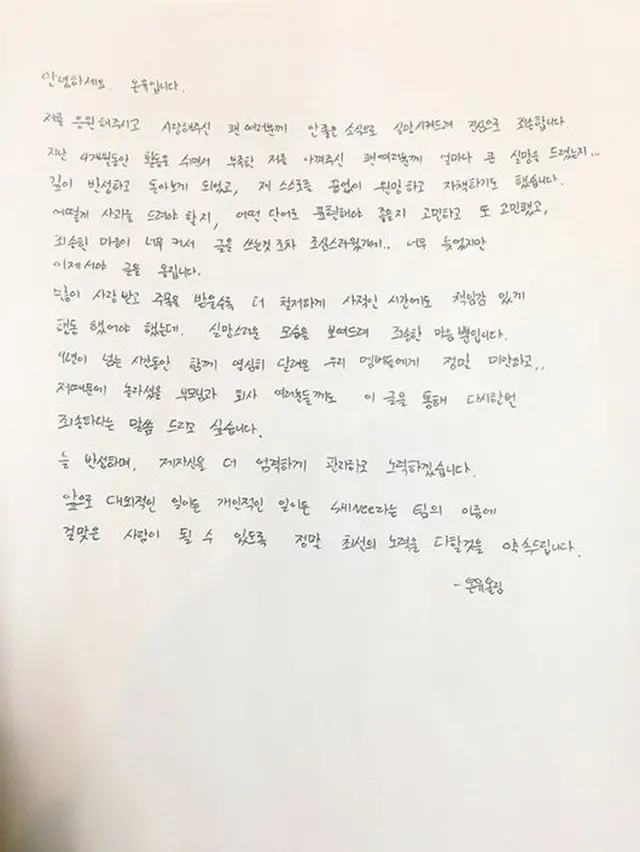 안녕하세요. 온유입니다.
저를 응원해주시고 사랑해주신 팬 여러분께 안좋은 소식으로 실망시켜드려 진심으로 죄송합니다.
지난 4개월동안 활동을 쉬면서 부족한 저를 아껴주신 팬여러분께 얼마나 큰 실망을 드렸는지...
깊이 반성하고 돌아보게 되었고, 제 스스로를 끊임없이 원망하고 자책하기도 했습니다.
어떻게 사과를 드려야 할지, 어떤 단어로 표현해야 좋을지 고민하고 또 고민했고,
죄송한 마음이 너무 커서 글을 쓰는것 조차 조심스러웠기에.. 너무 늦었지만
이제서야 글을 옮깁니다.
많이 사랑 받고 주목을 받을수록 더 철저하게 사적인 시간에도 책임감 있게
행동 했어야 했는데. 실망스러운 모습을 보여드려 죄송한 마음 뿐입니다.
9년이 넘는 시간동안 함께 열심히 달려온 우리 멤버들에게 정말 미안하고,,
저때문에 놀라셨을 부모님과 회사 여러분들께도 이 글을 통해 다시한번
죄송하다는 말씀 드리고 싶습니다.
늘 반성하며, 제자신을 더 엄격하게 관리하고 노력하겠습니다.
앞으로 대외적인 일이든 개인적인 일이든 SHINee라는 팀의 이름에
걸맞은 사람이 될 수 있도록 정말 최선의 노력을 다할것을 약속드립니다.
-온유올림